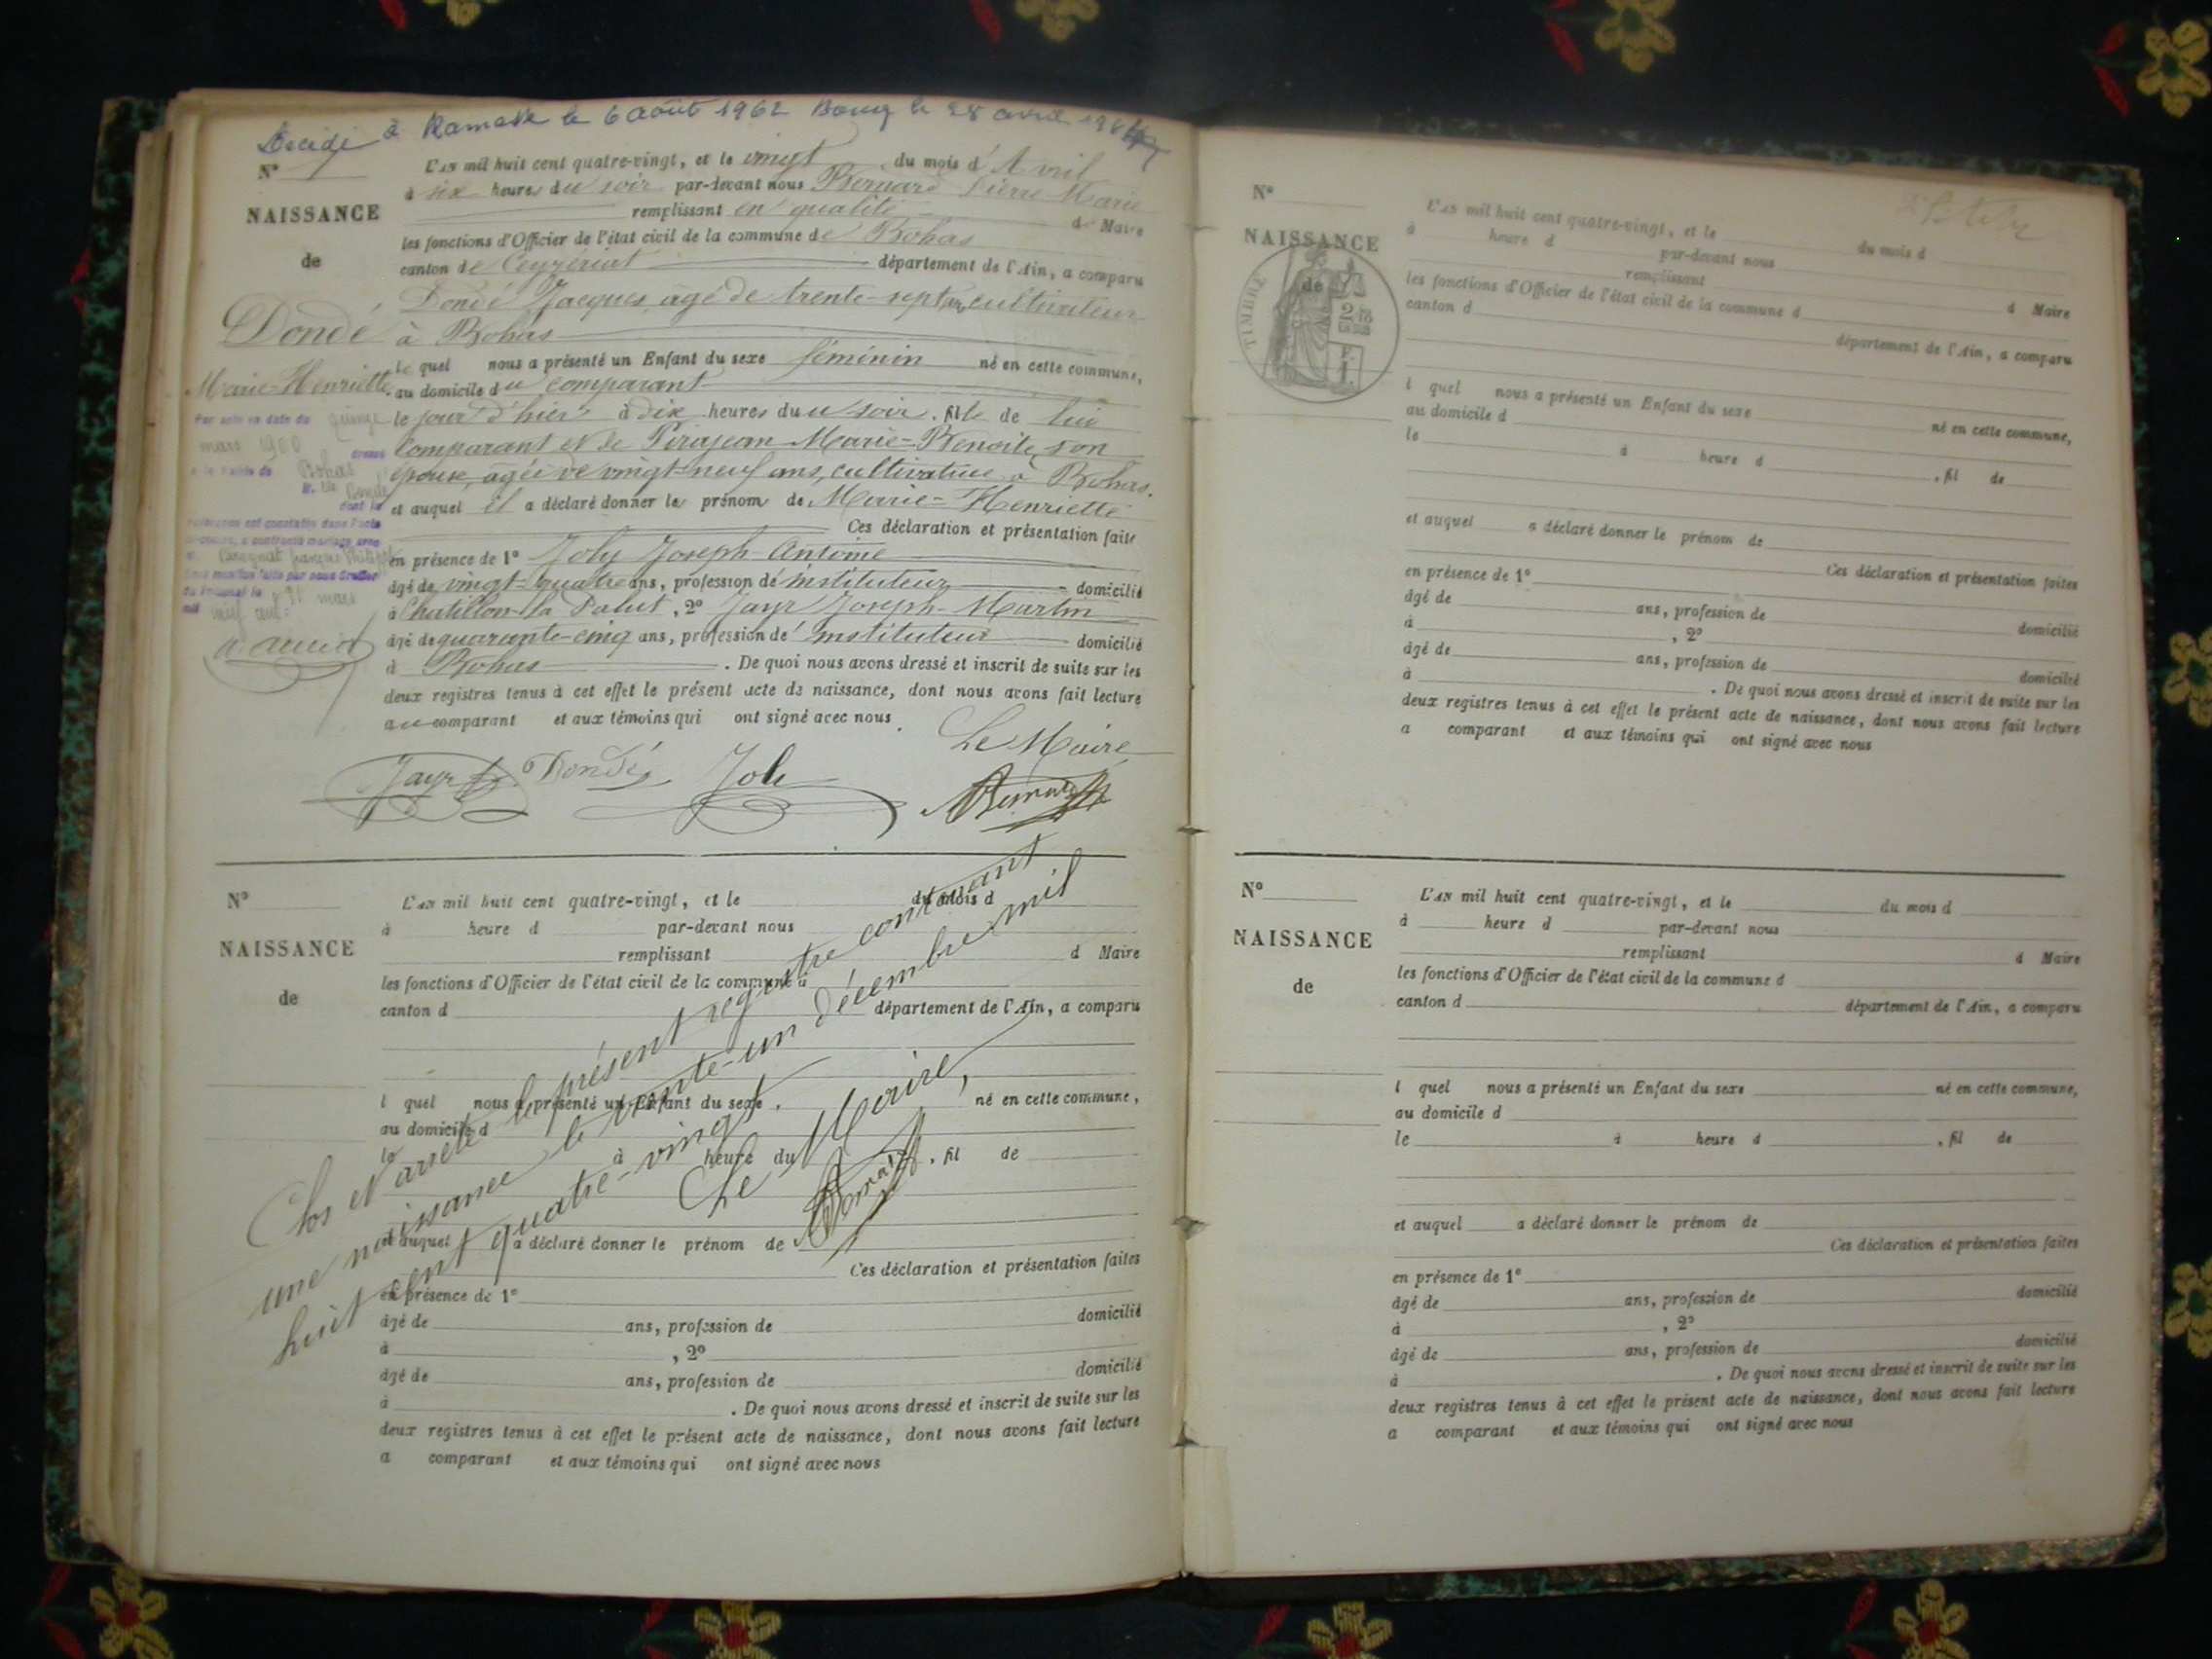 Décédé à Ramasse le 6 août 1962 Bourg le 28 avril
N° 1
NAISSANCE
de
Dondé
Marie-Henriette
L'AN mil huit cent quatre-vingt, et le vingt du mois d'Avril
à six heures du soir par-devant nous Bernard Pierre Marie
remplissant en qualité de Maire
les fonctions d'Officier de l'état civil de la commune de Bohas
canton de Ceyzériat département de l'Ain, a comparu
Dondé Jacques, âgé de trente-sept ans, cultivateur
à Bohas
le quel nous a présenté un Enfant du sexe féminin né en cette commune,
au domicile du comparant
le jour d'hier à dix heures du soir, fille de lui
comparant et de Pirajean Marie-Benoite, son
épouse, âgée de vingt-neuf ans, cultivatrice à Bohas.
et auquel il a déclaré donner les prénoms de Marie-Henriette
Ces déclaration et présentation faites
en présence de 1° Joly Joseph-Antoine
âgé de vingt-quatre ans, profession d'instituteur domicilié
à Chatillon-la-Palud, 2° Jayr Joseph-Martin
âgé de quarante-cinq ans, profession d'instituteur domicilié
à Bohas. De quoi nous avons dressé et inscrit de suite sur les
deux registres tenus à cet effet le présent acte de naissance, dont nous avons fait lecture
au comparant et aux témoins qui ont signé avec nous.
Le Maire
Jayr Dondé Joly Bernard
Par acte en date du quinze
mars 1900 dressé
à la Mairie de Bohas
Mlle Dondé
dont la
naissance est constatée dans l'acte
ci-contre, a contracté mariage avec
M. François Philippe
mention faite par nous Greffier
du tribunal le 21 mars
mil neuf cent.
N°
NAISSANCE
de
L'AN mil huit cent quatre-vingt, et le du mois d
à heure d par-devant nous
remplissant d Maire
les fonctions d'Officier de l'état civil de la commune d
canton d département de l'Ain, a comparu
l quel nous a présenté un Enfant du sexe né en cette commune,
au domicile d
le à heure du , fil de
et auquel a déclaré donner le prénom de
Ces déclaration et présentation faites
en présence de 1°
âgé de ans, profession de domicilié
à , 2°
âgé de ans, profession de domicilié
à . De quoi nous avons dressé et inscrit de suite sur les
deux registres tenus à cet effet le présent acte de naissance, dont nous avons fait lecture
a comparant et aux témoins qui ont signé avec nous
Clos et arrêté le présent registre contenant
une naissance le trente-un décembre mil
huit cent quatre-vingt
Le Maire,
Bernard
N°
NAISSANCE
de
TIMBRE
L'AN mil huit cent quatre-vingt, et le du mois d
à heure d par-devant nous
remplissant d Maire
les fonctions d'Officier de l'état civil de la commune d
canton d département de l'Ain, a comparu
l quel nous a présenté un Enfant du sexe né en cette commune,
au domicile d
le à heure d , fil de
et auquel a déclaré donner le prénom de
Ces déclaration et présentation faites
en présence de 1°
âgé de ans, profession de domicilié
à , 2°
âgé de ans, profession de domicilié
à . De quoi nous avons dressé et inscrit de suite sur les
deux registres tenus à cet effet le présent acte de naissance, dont nous avons fait lecture
a comparant et aux témoins qui ont signé avec nous
N°
NAISSANCE
de
L'AN mil huit cent quatre-vingt, et le du mois d
à heure d par-devant nous
remplissant d Maire
les fonctions d'Officier de l'état civil de la commune d
canton d département de l'Ain, a comparu
l quel nous a présenté un Enfant du sexe né en cette commune,
au domicile d
le à heure d , fil de
et auquel a déclaré donner le prénom de
Ces déclaration et présentation faites
en présence de 1°
âgé de ans, profession de domicilié
à , 2°
âgé de ans, profession de domicilié
à . De quoi nous avons dressé et inscrit de suite sur les
deux registres tenus à cet effet le présent acte de naissance, dont nous avons fait lecture
a comparant et aux témoins qui ont signé avec nous